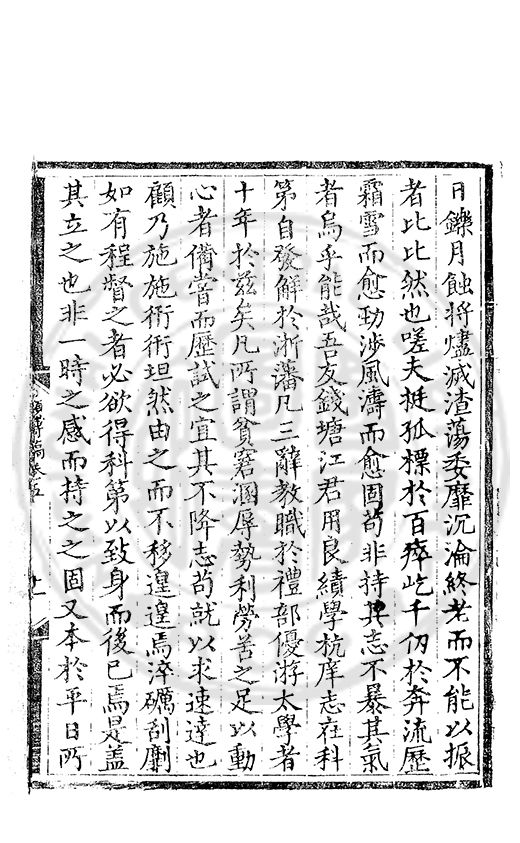 日鑠月蝕将燼滅渣蕩委靡沉淪終老而不能以振
者比比然也嗟夫挺孤標於百瘁屹千仞於奔流歷
霜雪而愈勁涉風濤而愈固苟非持其志不暴其氣
者烏乎能哉吾友錢塘江君用良績學杭庠志在科
第自發解於浙藩凡三辭教職於禮部優游太學者
十年於兹矣凡所謂貧窘溷辱勢利勞苦之足以動
心者備嘗而歷試之宜其不降志苟就以求速達也
顧乃施施衎衎坦然由之而不移遑遑焉淬礪刮劘
如有程督之者必欲得科第以致身而後已焉是盖
其立之也非一時之感而持之之固又本於平日所
稿卷五
十一